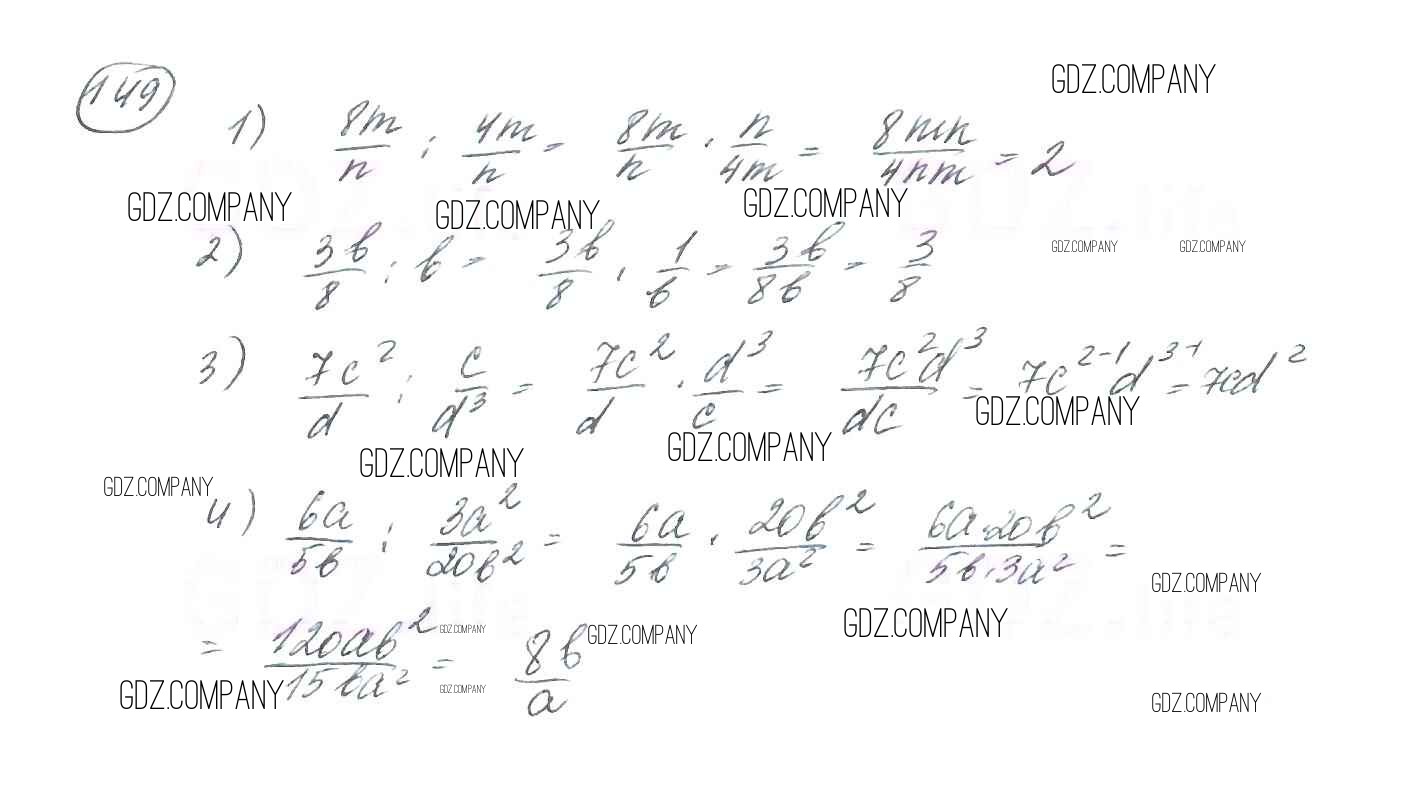 149
GDZ.COMPANY
1) 8m/n : 4m/n = 8m/n · n/4m = 8mn/4nm = 2
GDZ.COMPANY GDZ.COMPANY GDZ.COMPANY
2) 3b/8 : b = 3b/8 · 1/b = 3b/8b = 3/8
GDZ.COMPANY GDZ.COMPANY
3) 7c²/d : c/d³ = 7c²/d · d³/c = 7c²d³/dc = 7c²⁻¹d³⁻¹ = 7cd²
GDZ.COMPANY GDZ.COMPANY GDZ.COMPANY
GDZ.COMPANY
4) 6a/5b : 3a²/20b² = 6a/5b · 20b²/3a² = 6a·20b²/5b·3a² =
GDZ.COMPANY
= 120ab²/15ba² = 8b/a
GDZ.COMPANY GDZ.COMPANY GDZ.COMPANY
GDZ.COMPANY GDZ.COMPANY GDZ.COMPANY